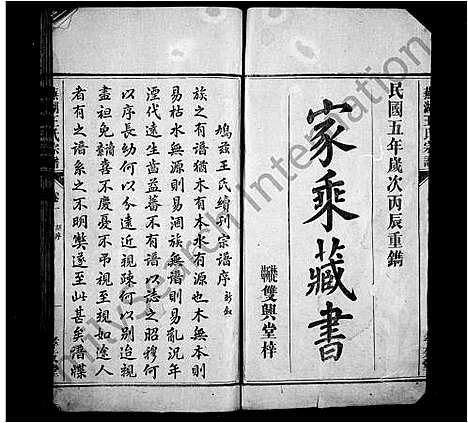 民國五年歲次丙辰重鐫
家乘藏書
雙興堂梓
鳩茲王氏續刊宗譜序
族之有譜猶木有本水有源也木無本則
易枯水無源則易涸族無譜則易亂況年
湮代遠生齒益蕃不有譜以誌之昭穆何
以序長幼何以分遠近親疎何以別迨親
盡袒免譜喜不慶憂不弔視至親如途人
者有之譜系之不明獘遂至此甚矣譜牒
蕪湖王氏宗譜